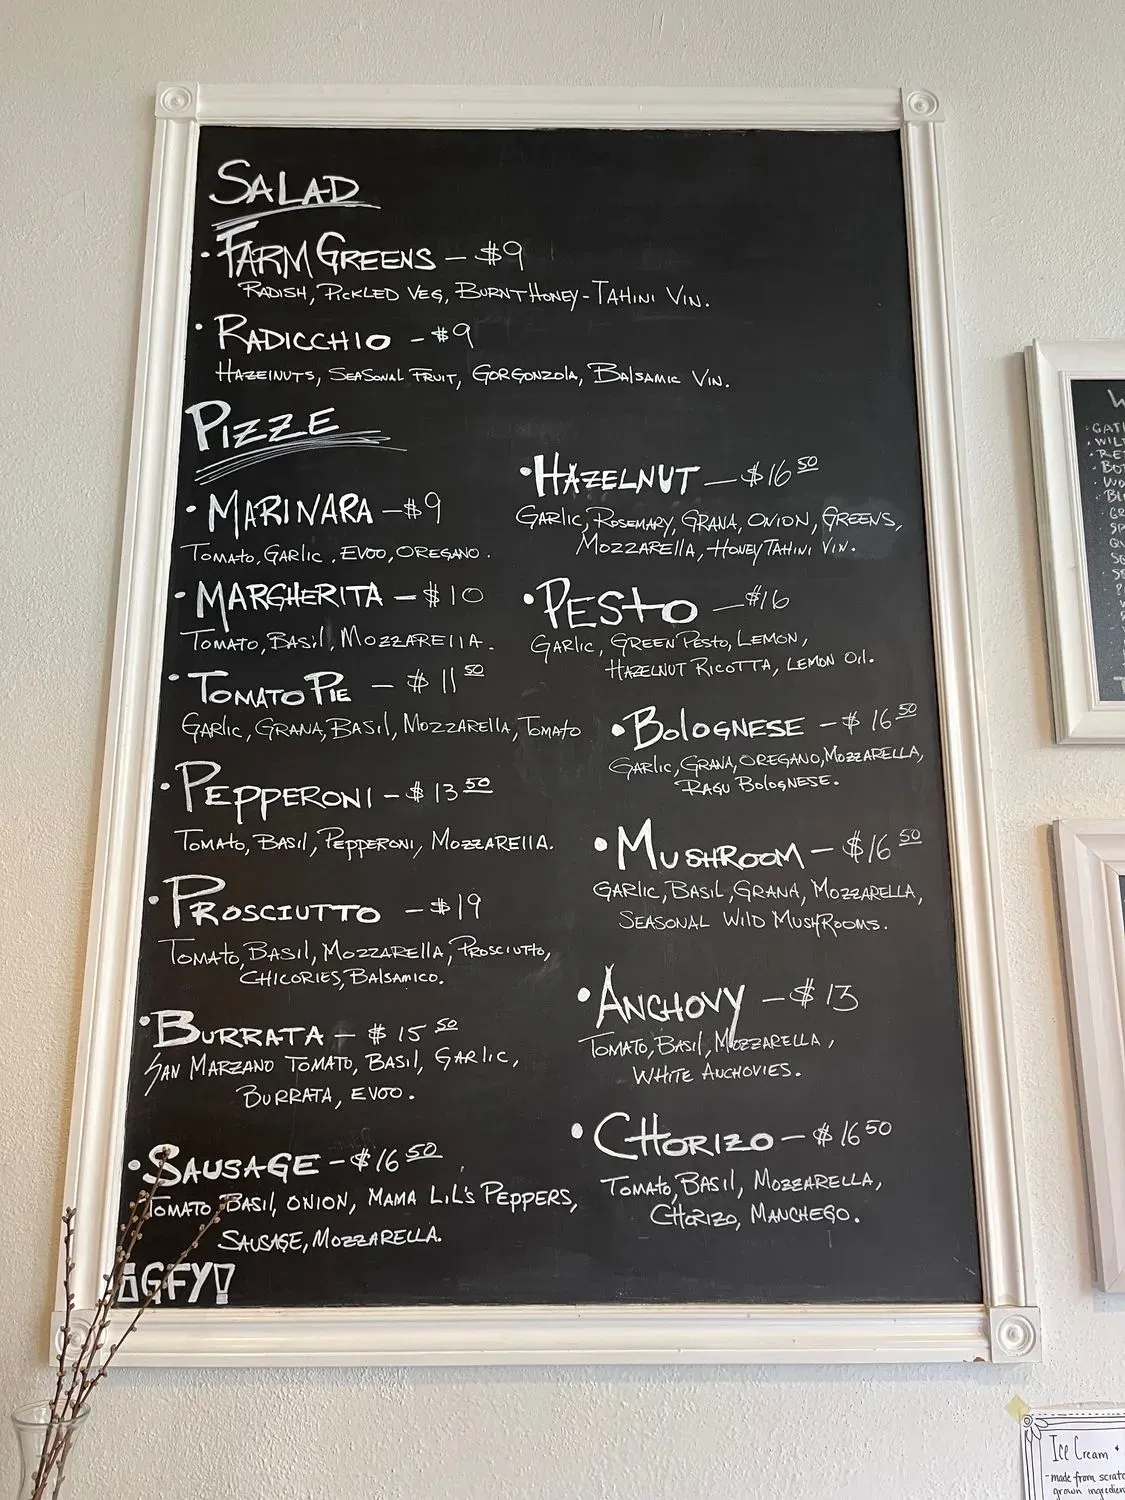 SALAD
• FARM GREENS – $9
RADISH, PICKLED VEG, BURNT HONEY-TAHINI VIN.
• RADICCHIO - $9
HAZElNUTS, SEASONAL FRUIT, GORGONZOLA, BAlSAMIC VIN.
PIZZE
• MARINARA – $9
TOMATO, GARLIC, EVOO, OREGANO.
• MARGHERITA – $10
TOMATO, BASIl, MOZZAREllA.
• TOMATO PIE – $11 50
GARlIC, GRANA, BASIl, MOZZAREllA, TOMATO
• PEPPERONI – $13 50
TOMATO, BASIl, PEPPERONI, MOZZAREllA.
• PROSCIUTTO – $19
TOMATO, BASIl, MOZZARELLA, PROSCIUTTO,
CHICORIES, BAlSAMICO.
• BURRATA – $15 50
SAN MARZANO TOMATO, BASIl, GARlIC,
BURRATA, EVOO.
• SAUSAGE – $16 50
TOMATO, BASIl, ONION, MAMA LIL'S PEPPERS,
SAUSAGE, MOZZARELLA.
¡GFY!
• HAZELNUT – $16 50
GARLIC, ROSEMARY, GRANA, ONION, GREENS,
MOZZARELLA, HONEY TAHINI VIN.
• PESTO – $16
GARLIC, GREEN PESTO, LEMON,
HAZELNUT RICOTTA, LEMON OIl.
• BOlOGNESE – $16 50
GARLIC, GRANA, OREGANO, MOZZARELLA,
RAGU BOlOGNESE.
• MUSHROOM – $16 50
GARLIC, BASIL, GRANA, MOZZARELLA,
SEASONAL WILD MUSHROOMS.
• ANCHOVY – $13
TOMATO, BASIl, MOZZARELLA,
WHITE ANCHOVIES.
• CHORIZO – $16 50
TOMATO, BASIl, MOZZARELLA,
CHORIZO, MANCHEGO.
Ice Cream
- made from
grown